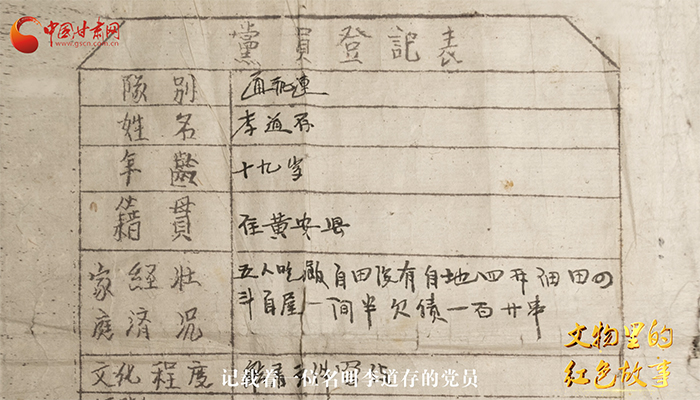 中国甘肃网
www.gscn.com.cn
黨員登記表
隊別 直
姓名 李道存
年齡 十九岁
籍貫 住黄安县
家庭經济壮况 五人吃飯自田没有自地四升佃田四
斗自屋一间半欠债一百廿串
文化程度
记载着一位名叫李道存的党员
文物里的
红色故事